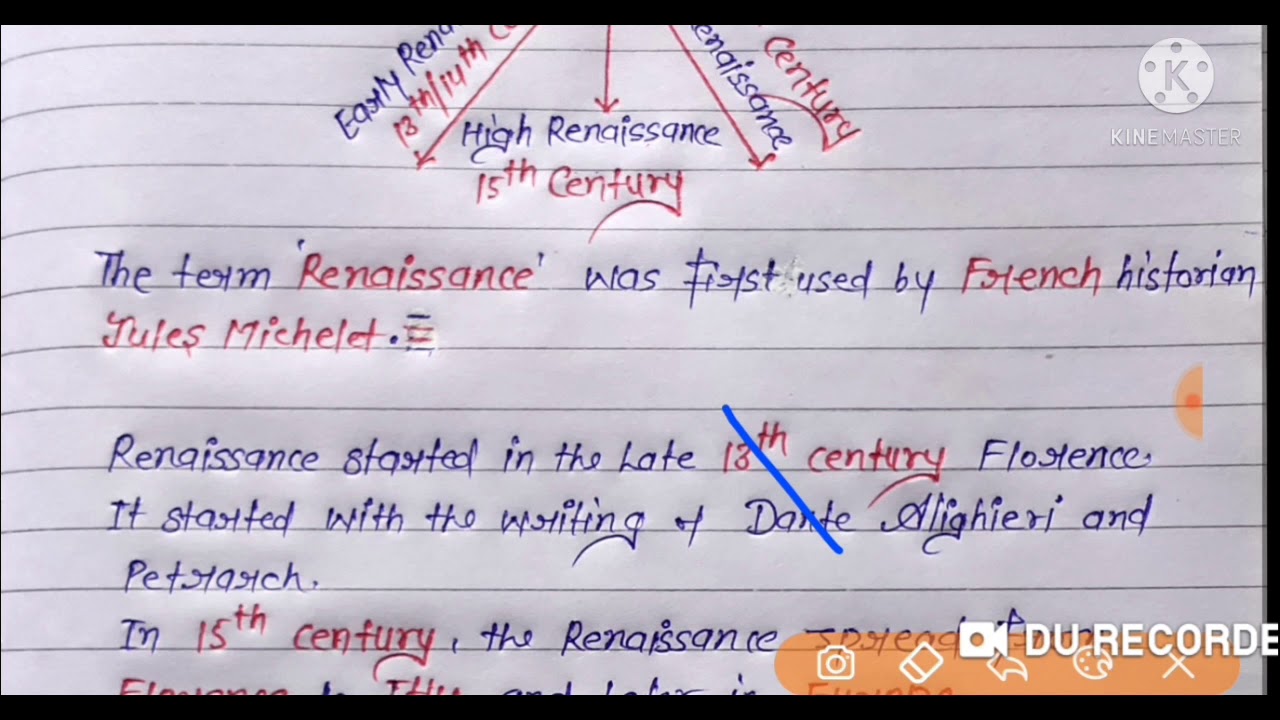 Early Rena
13th/14th C
High Renaissance
15th Century
enaissance
Century
KINEMASTER
The term 'Renaissance' was first used by French historian
Jules Michelet.
Renaissance started in the Late 13th century Florence.
It started with the writing of Dante Alighieri and
Petrarch.
In 15th century, the Renaissance spread from
DU RECORDE
Florence to Italy and later in Europe